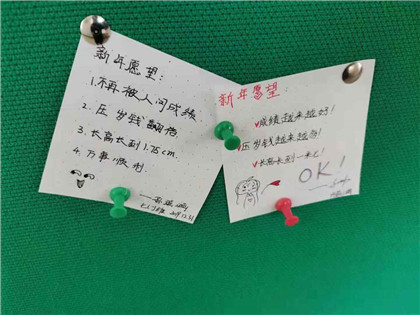 新年愿望：
1.不再被人问成绩.
2.压岁钱翻倍
3.长高长到1.75cm.
4.万事顺利.
新年愿望：
成绩越来越好！
压岁钱越来越多！
长高长到一米七！
OK！